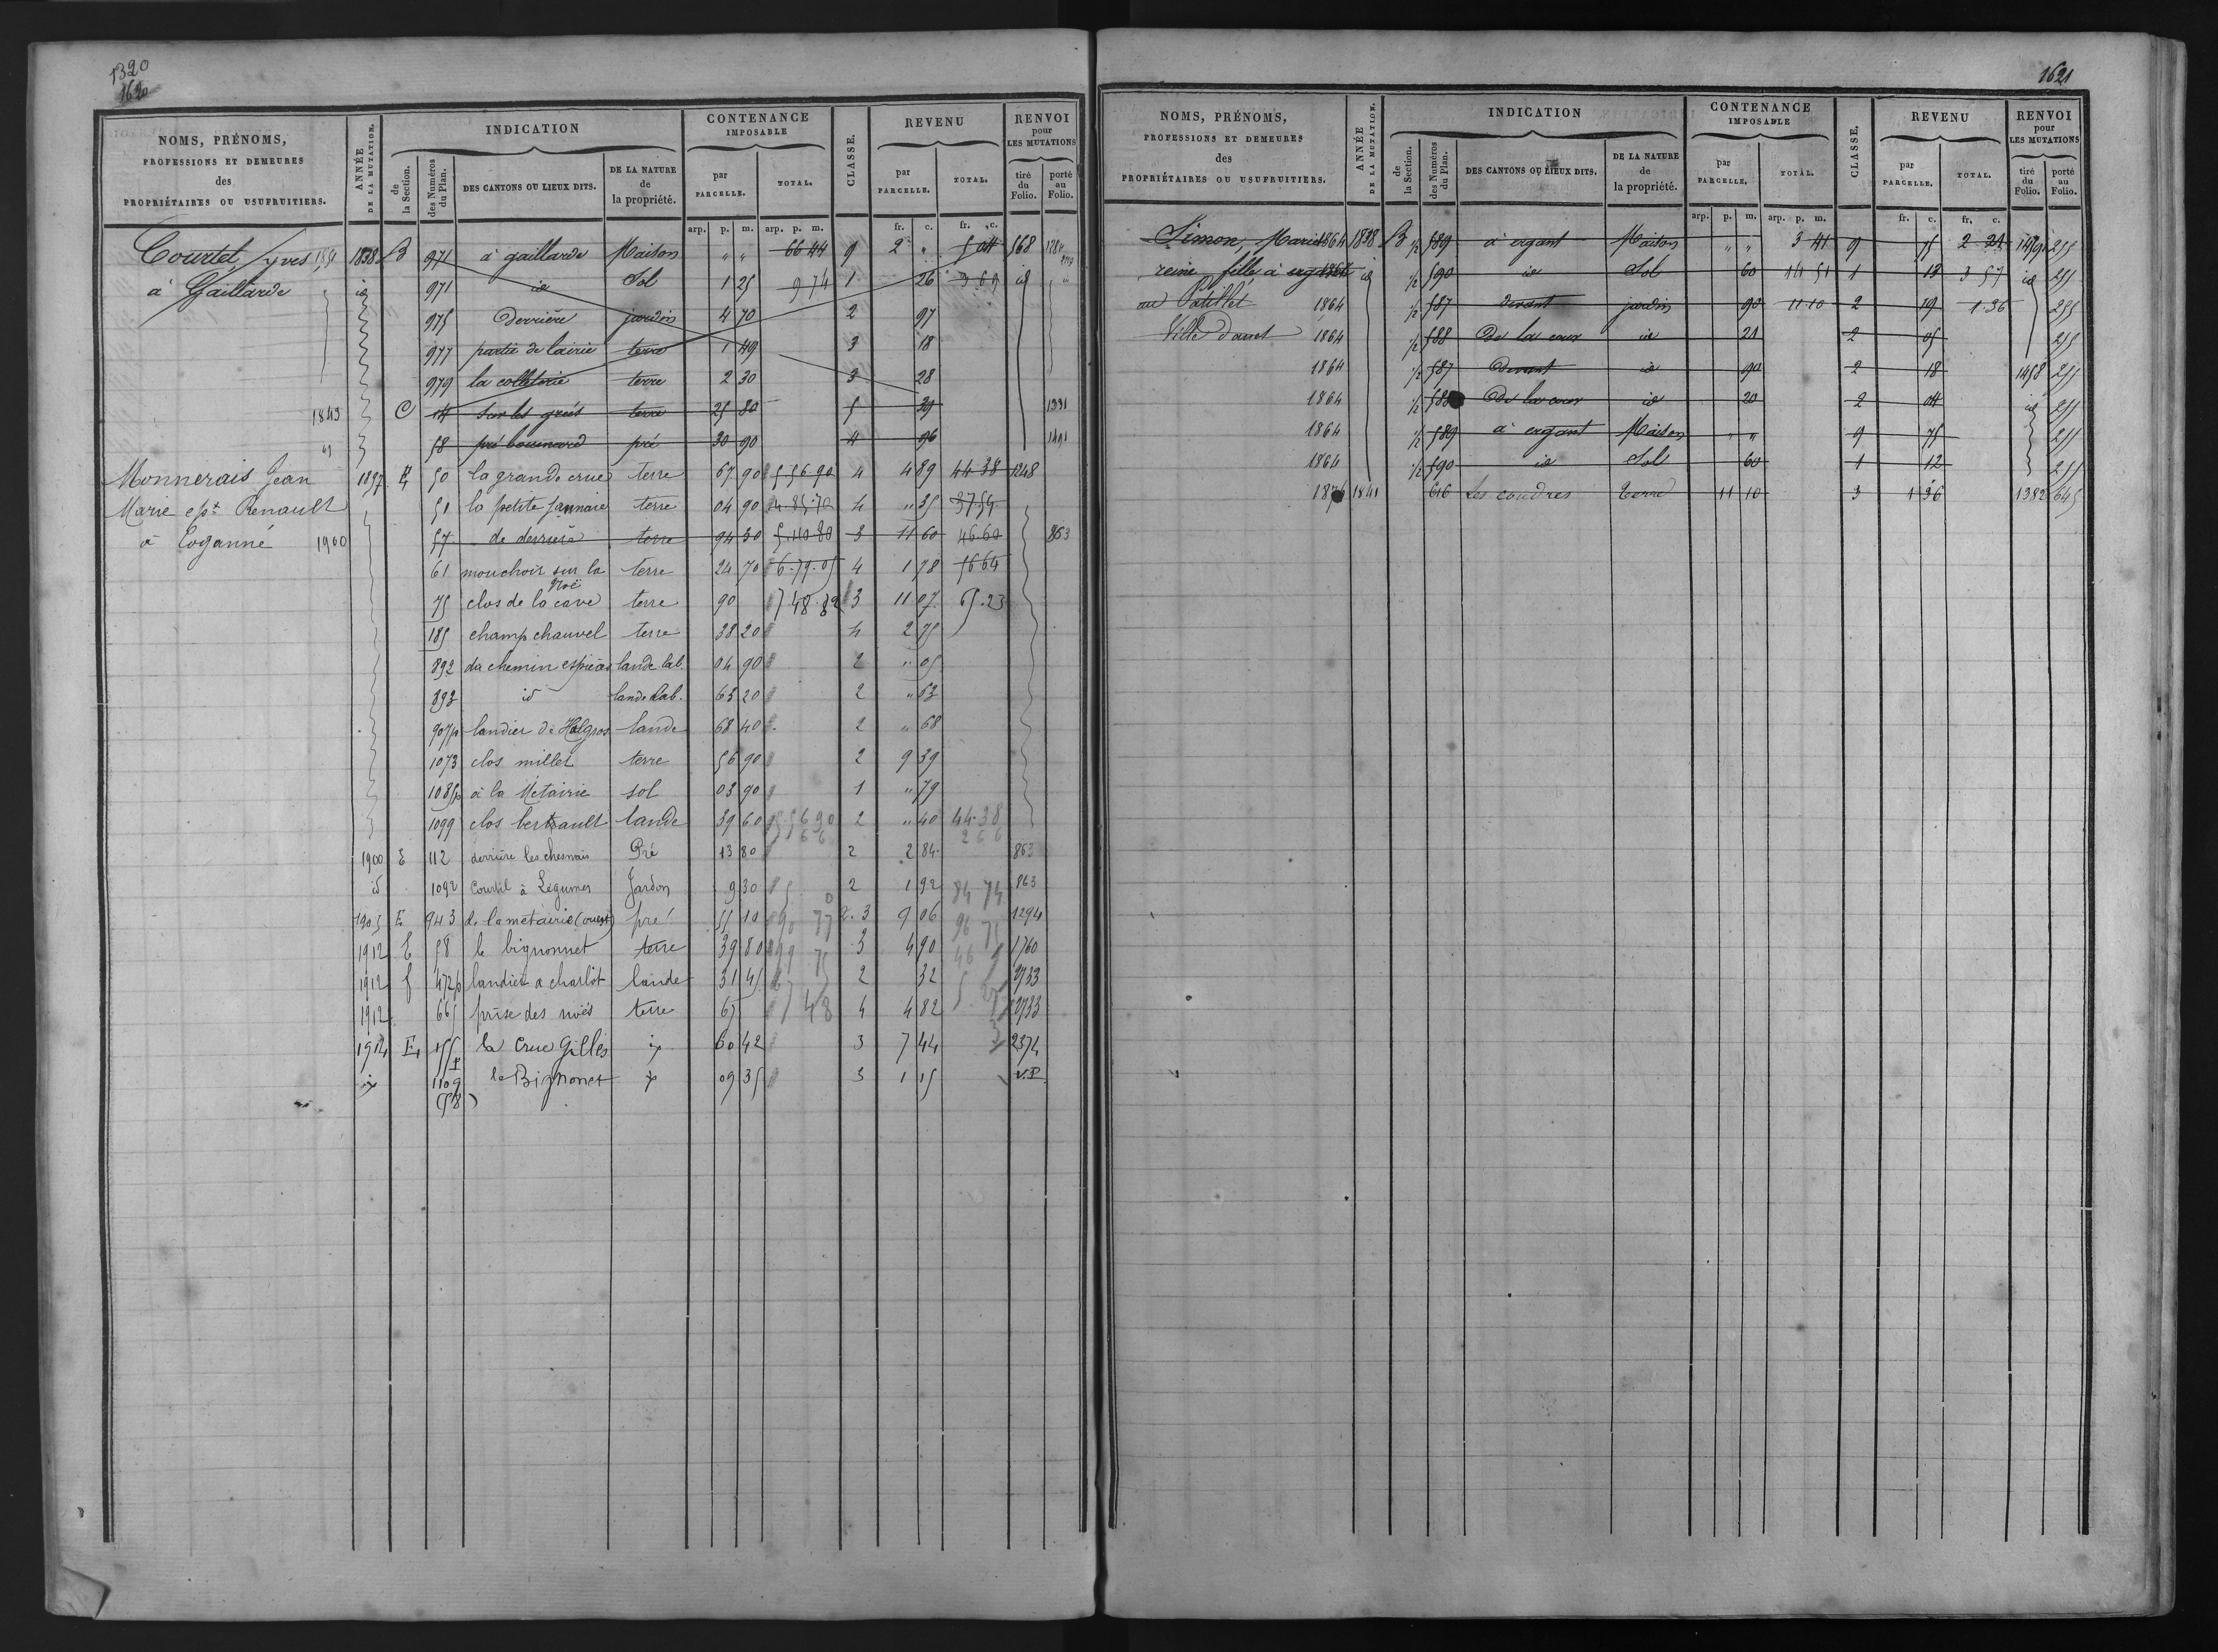 1320
1620
NOMS, PRÉNOMS, PROFESSIONS ET DEMEURES des PROPRIÉTAIRES OU USUFRUITIERS. ANNÉE DE LA MUTATION. INDICATION de la Section. des Numéros du Plan. DES CANTONS OU LIEUX DITS. DE LA NATURE de la propriété. CONTENANCE IMPOSABLE par PARCELLE. TOTAL. CLASSE. REVENU par PARCELLE. TOTAL. RENVOI pour LES MUTATIONS tiré du Folio. porté au Folio.
arp. p. m. arp. p. m. fr. c. fr. c.
Courtel, Yves 1838 B 971 à gaillarde Maison " " 66 44 9 2 " 5 04 568
à Gaillarde id 971 id Sol 1 25 9 74 1 26 3 69 id
975 Derrière jardin 4 70 2 97
977 partie de lairie terre 1 49 3 18
979 la colleterie terre 2 30 3 28
1843 C 14 Sur les grés terre 25 80 5 39 1331
58 pré bouenard pré 30 90 4 96 1491
Monnerais Jean 1897 E 50 la grande crue terre 67 90 5 56 90 4 4 89 44 38 1248
Marie ept Renault 51 la petite jannaie terre 04 90 4.85.70 4 " 35 37.54
à Eoganné 1900 57 de derrière terre 94 30 5.10.80 3 11 60 46.60 863
61 mouchoir sur la Noë terre 24 70 6.79.05 4 1 78 56 64
75 clos de la cave terre 90 7 48.82 3 11 07 65.23
185 champ chauvel terre 38 20 4 2 75
892 du chemin espiéas lande lab. 04 90 2 " 05
893 id lande lab. 63 20 2 " 63
907p landier de Halgros lande 68 40 2 " 68
1073 clos millet terre 56 90 2 9 39
1085p à la Métairie sol 03 90 1 " 79
1099 clos bertrault lande 39 60 5.56 90 2 " 40 44.38
66 2 66
1900 E 112 derrière les chesnais Pré 13 80 2 2 84 863
id 1092 Courtil à Légumes Jardon 9 30 2 1 92 84 74 863
1905 E 943 de la métairie (ouest) pré 55 10 2.3 9 06 96 75 1294
1912 E 58 le bignonnet terre 39 80 3 4 90 1760
1912 f 472p landier a charlot lande 31 45 2 32 2733
1912 665 prise des noës terre 67 48 4 4 82 2733
1914 E 155p la Crue Gilles id 60 42 3 7 44 2374
id 1109 le Bignonet id 09 35 3 1 15 V.P.
(58)
1621
NOMS, PRÉNOMS, PROFESSIONS ET DEMEURES des PROPRIÉTAIRES OU USUFRUITIERS. ANNÉE DE LA MUTATION. INDICATION de la Section. des Numéros du Plan. DES CANTONS OU LIEUX DITS. DE LA NATURE de la propriété. CONTENANCE IMPOSABLE par PARCELLE. TOTAL. CLASSE. REVENU par PARCELLE. TOTAL. RENVOI pour LES MUTATIONS tiré du Folio. porté au Folio.
arp. p. m. arp. p. m. fr. c. fr. c.
Simon, Marie 1864 1838 B 1/2 589 à ergant Maison " " 3 41 9 75 2 21 255
reine fille à ergant 1864 id 1/2 590 id Sol 60 14 51 1 12 3 57 id 255
au Patillet 1864 1/2 587 devant jardin 90 11 10 2 19 1.36 255
1864 1/2 588 De la cour id 21 2 05 255
1864 1/2 587 Devant id 90 2 18 1458 255
1864 1/2 588 De la cour id 20 2 04 id 255
1864 1/2 589 à ergant Maison " " 9 75 255
1864 1/2 590 id Sol 60 1 12 255
1841 616 Les coudres terre 11 10 3 1 36 1382 645